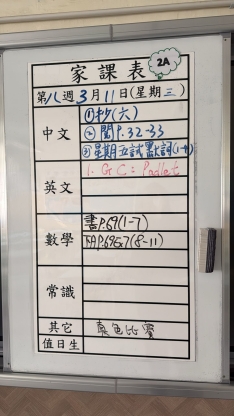 家課表 2A
第八週3月11日(星期三)
中文
①抄(六)
②閱P.32-33
③星期五試默詞(1-9)
英文
1. GC: Padlet
數學
書P.69(1-7)
P.69(8-11)
常識
其它
比賽
值日生